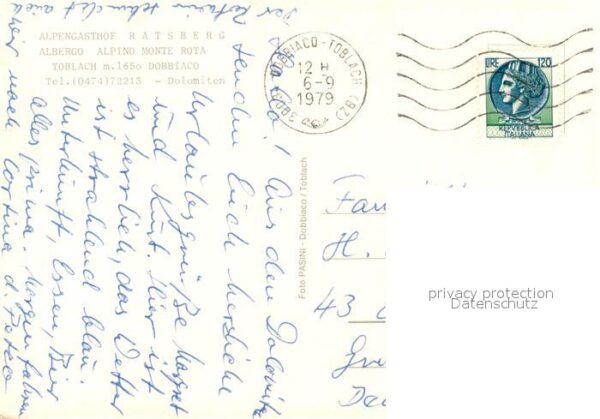 ALPENGASTHOF RATSBERG
ALBERGO ALPINO MONTE ROTA
TOBLACH m.1650 DOBBIACO
Tel.(0474)72213 - Dolomiten
39034 DOBBIACO-TOBLACH (BZ)
12 H
6-9
1979
LIRE 120
REPVBBLICA
ITALIANA
Foto PASINI - Dobbiaco / Toblach
! Aus den Dolomiten
senden Euch herzliche
Urlaubsgrüße Margret
und Kurt. Hier ist
es herrlich, das Wetter
ist strahlend blau.
Unterkunft, Essen, Bier
alles prima. Morgen fahren
wir nach Cortina d.
Der schmeckt auch
Fam
H.
43
privacy protection
Datenschutz